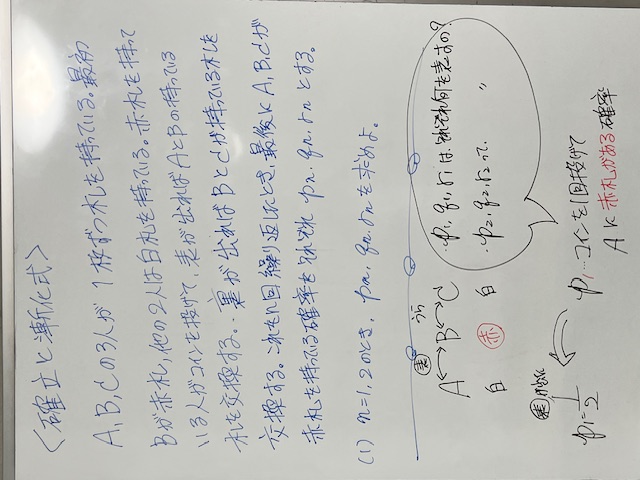 〈確立と漸化式〉
A,B,Cの3人が1枚ずつ札を持っている。最初
Bが赤札,他の2人は白札を持っている。赤札を持って
いる人がコインを投げて、表が出ればAとBの持っている
札を交換する。裏が出ればBとCが持っている札を
交換する。これをn回繰り返したとき,最後にA,B,Cが
赤札を持ってる確率をそれぞれ pn, qn, rn とする。
(1) n=1,2のとき, pn, qn, rn を求めよ。
表 うら
A⟷B⟷C
白 赤 白
・p1, q1, r1 は、それぞれ何を表すの?
・p2, q2, r2 って、 〃
p1…コインを1回投げて
Aに赤札がある確率
p1=1/2